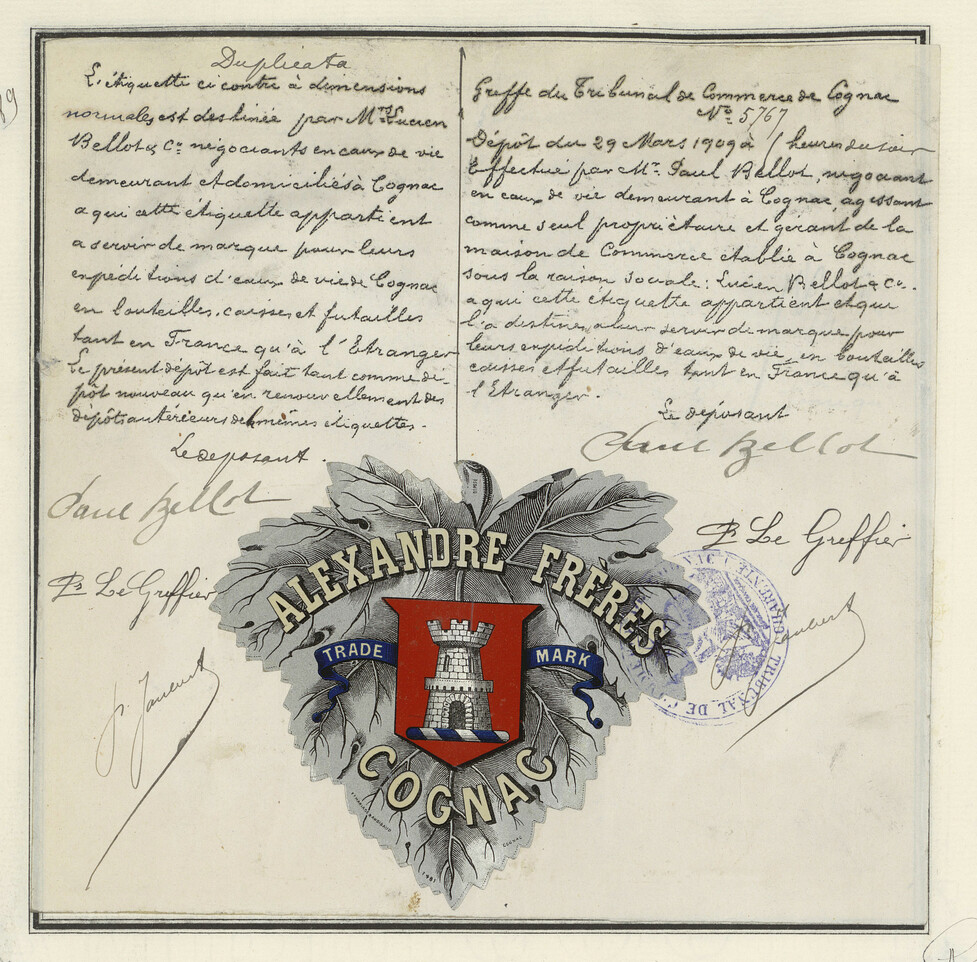 Duplicata
L'étiquette ci contre à dimensions
normales, est destinée par Mrs Lucien
Bellot & Cie négociants en eaux de vie
demeurant et domiciliés à Cognac
a qui cette étiquette appartient
a servir de marque pour leurs
expéditions d'eaux de vie de Cognac
en bouteilles, caisses et futailles
tant en France qu'à l'Etranger
Le présent dépôt est fait tant comme dé-
pôt nouveau qu'en renouvellement des
dépôts antérieurs de mêmes étiquettes.
Le deposant.
Paul Bellot
Pr Le Greffier
Greffe du Tribunal de Commerce de Cognac
No. 5767
Dépôt du 29 Mars 1909 à 1 heures du soir
Effectué par Mr. Paul Bellot, négociant
en eaux de vie demeurant à Cognac, agissant
comme seul propriétaire et gérant de la
maison de Commerce établie à Cognac
sous la raison sociale: Lucien Bellot & Cie.
a qui cette étiquette appartient et qui
l'a destinée a leur servir de marque pour
leurs expéditions d'eaux de vie, en bouteilles
caisses et futailles tant en France qu'à
l'Etranger.
Le déposant
Paul Bellot
Pr Le Greffier
ALEXANDRE FRÈRES
TRADE MARK
COGNAC
COGNAC
1481
TRIBUNAL DE